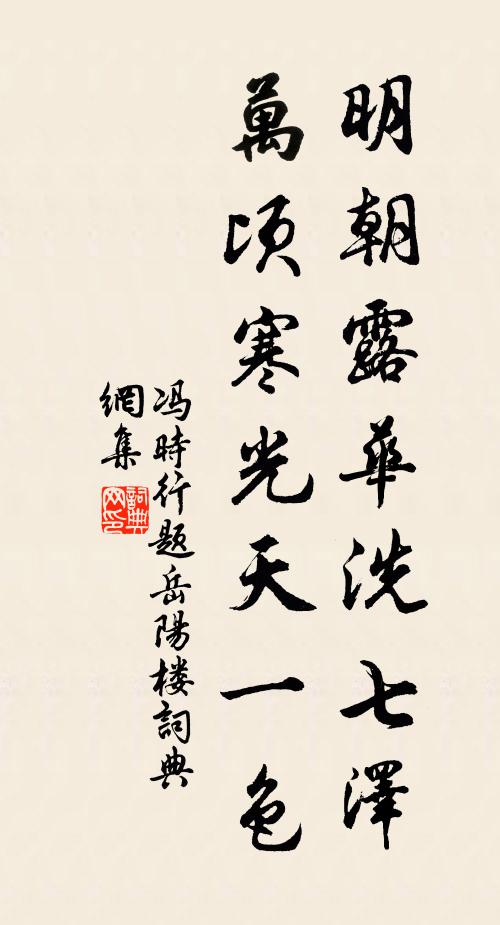 明朝露華洗七澤
萬頃寒光天一色
冯時行题岳陽楼詞典
網集
詞典网印